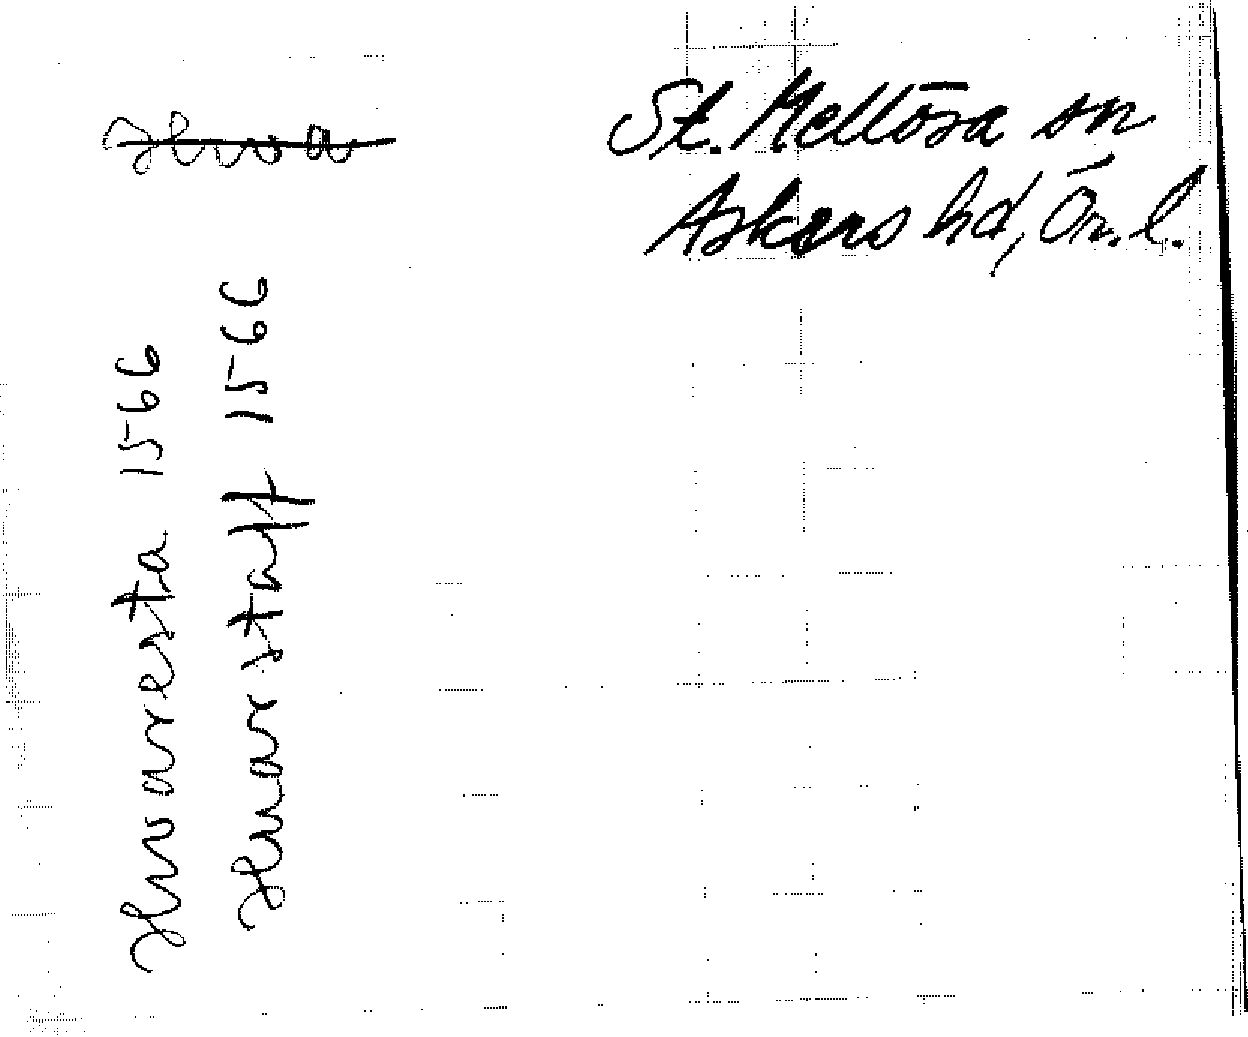 Hwa
St. Mellösa sn
Askers hd, Ör. l.
Hwaresta 1566
Hwarstaff 1566